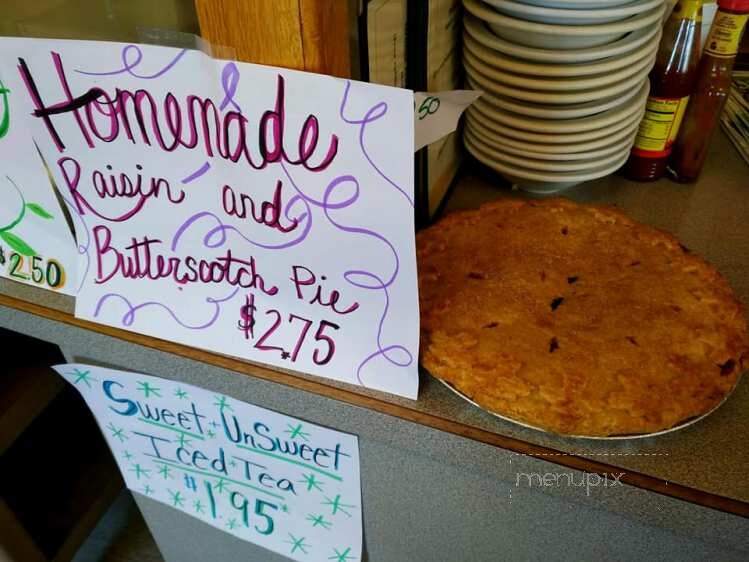 Homemade
Raisin and
Butterscotch Pie
$2.75
$2.50
50
Sweet + UnSweet
Iced Tea
$1.95
menupix